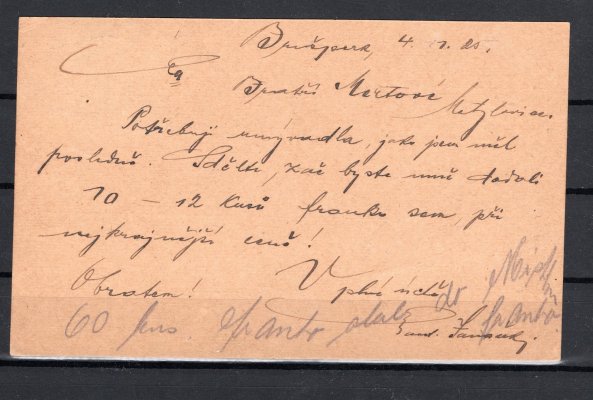 Brušperk, 4. 9. 25.
Fa
Bratři Mertové
Metylovice
Potřebuji umývadla, jako jsem měl
posledně. Sdělte, zač byste mně dodali
10 – 12 kusů franko sem, při
nejkrajnější ceně!
Obratem! V plné úctě
60 kus franko